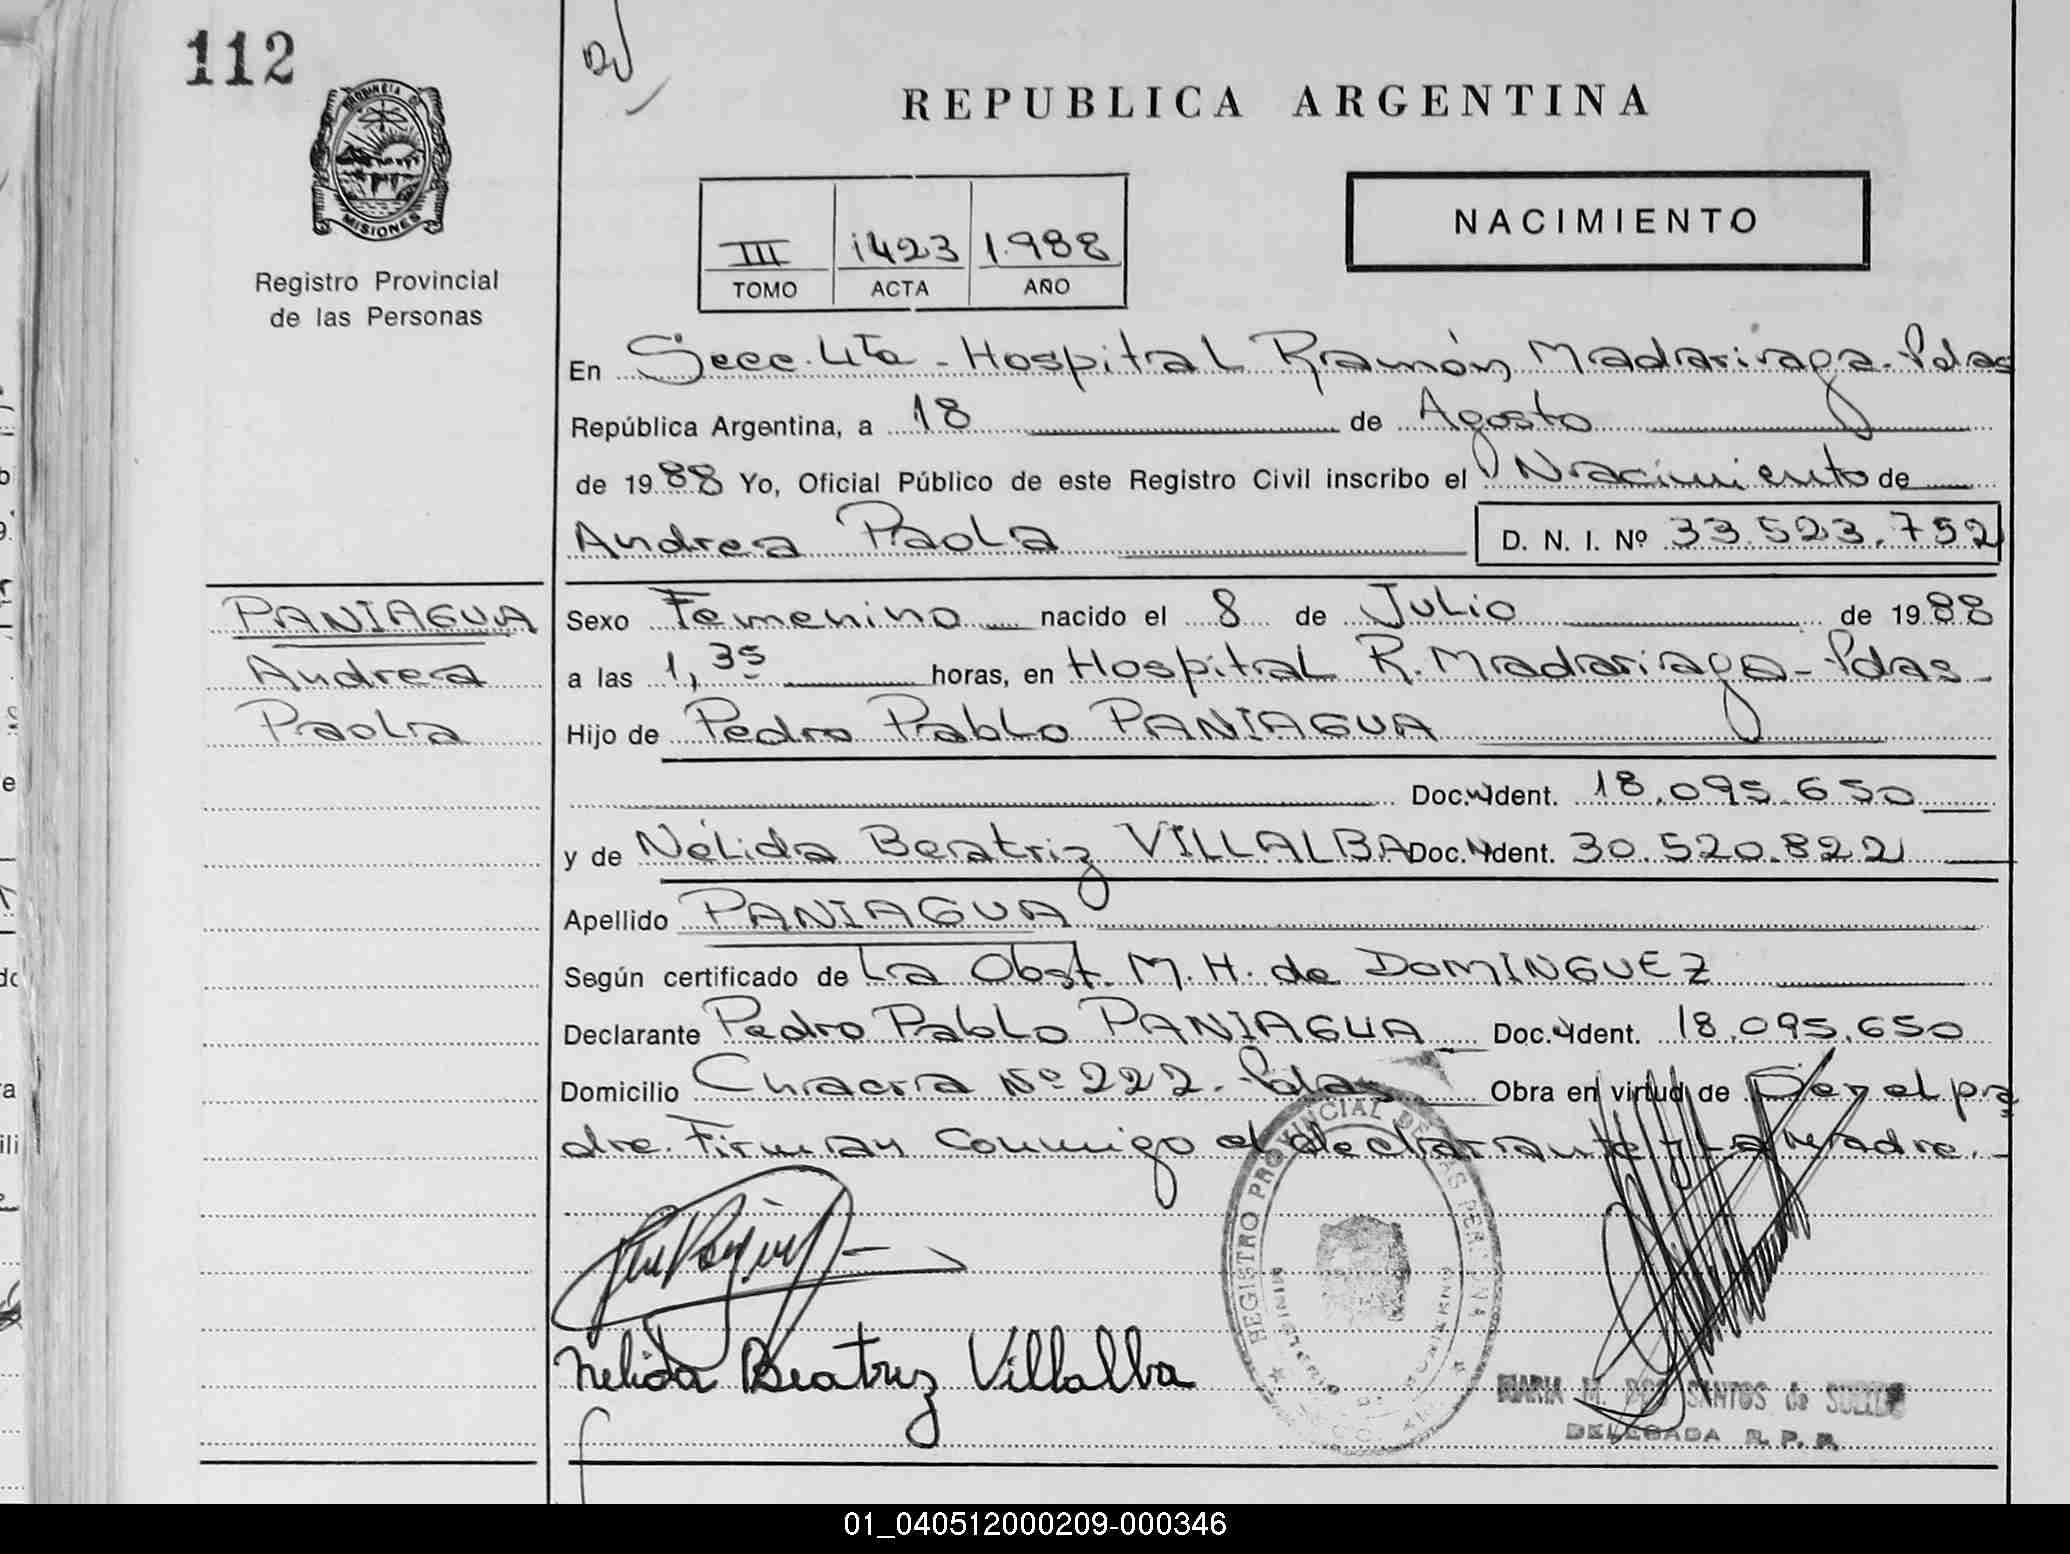 112
REPUBLICA ARGENTINA
PROVINCIA DE
MISIONES
Registro Provincial
de las Personas
NACIMIENTO
III 1423 1.988
TOMO ACTA AÑO
En Secc. 4ta - Hospital Ramón Madariaga. Pdas
República Argentina, a 18 de Agosto
de 1988 Yo, Oficial Público de este Registro Civil inscribo el Nacimiento de
Andrea Paola D. N. I. Nº 33.523.752
PANIAGUA
Andrea
Paola
Sexo Femenino nacido el 8 de Julio de 1988
a las 1,35 horas, en Hospital R. Madariaga - Pdas -
Hijo de Pedro Pablo PANIAGUA
Doc. Ident. 18.095.650
y de Nélida Beatriz VILLALBA Doc. Ident. 30.520.822
Apellido PANIAGUA
Según certificado de La Obst. M. H. de DOMINGUEZ
Declarante Pedro Pablo PANIAGUA Doc. Ident. 18.095.650
Domicilio Chacra Nº 222. Pdas Obra en virtud de Ser el pa
dre. Firman conmigo el declarante y la Madre. -
REGISTRO PROVINCIAL DE LAS PERSONAS
MINISTERIO DE GOBIERNO
Nelida Beatriz Villalba
MARIA M. DOS SANTOS de
DELEGADA R. P. P.
01_040512000209-000346